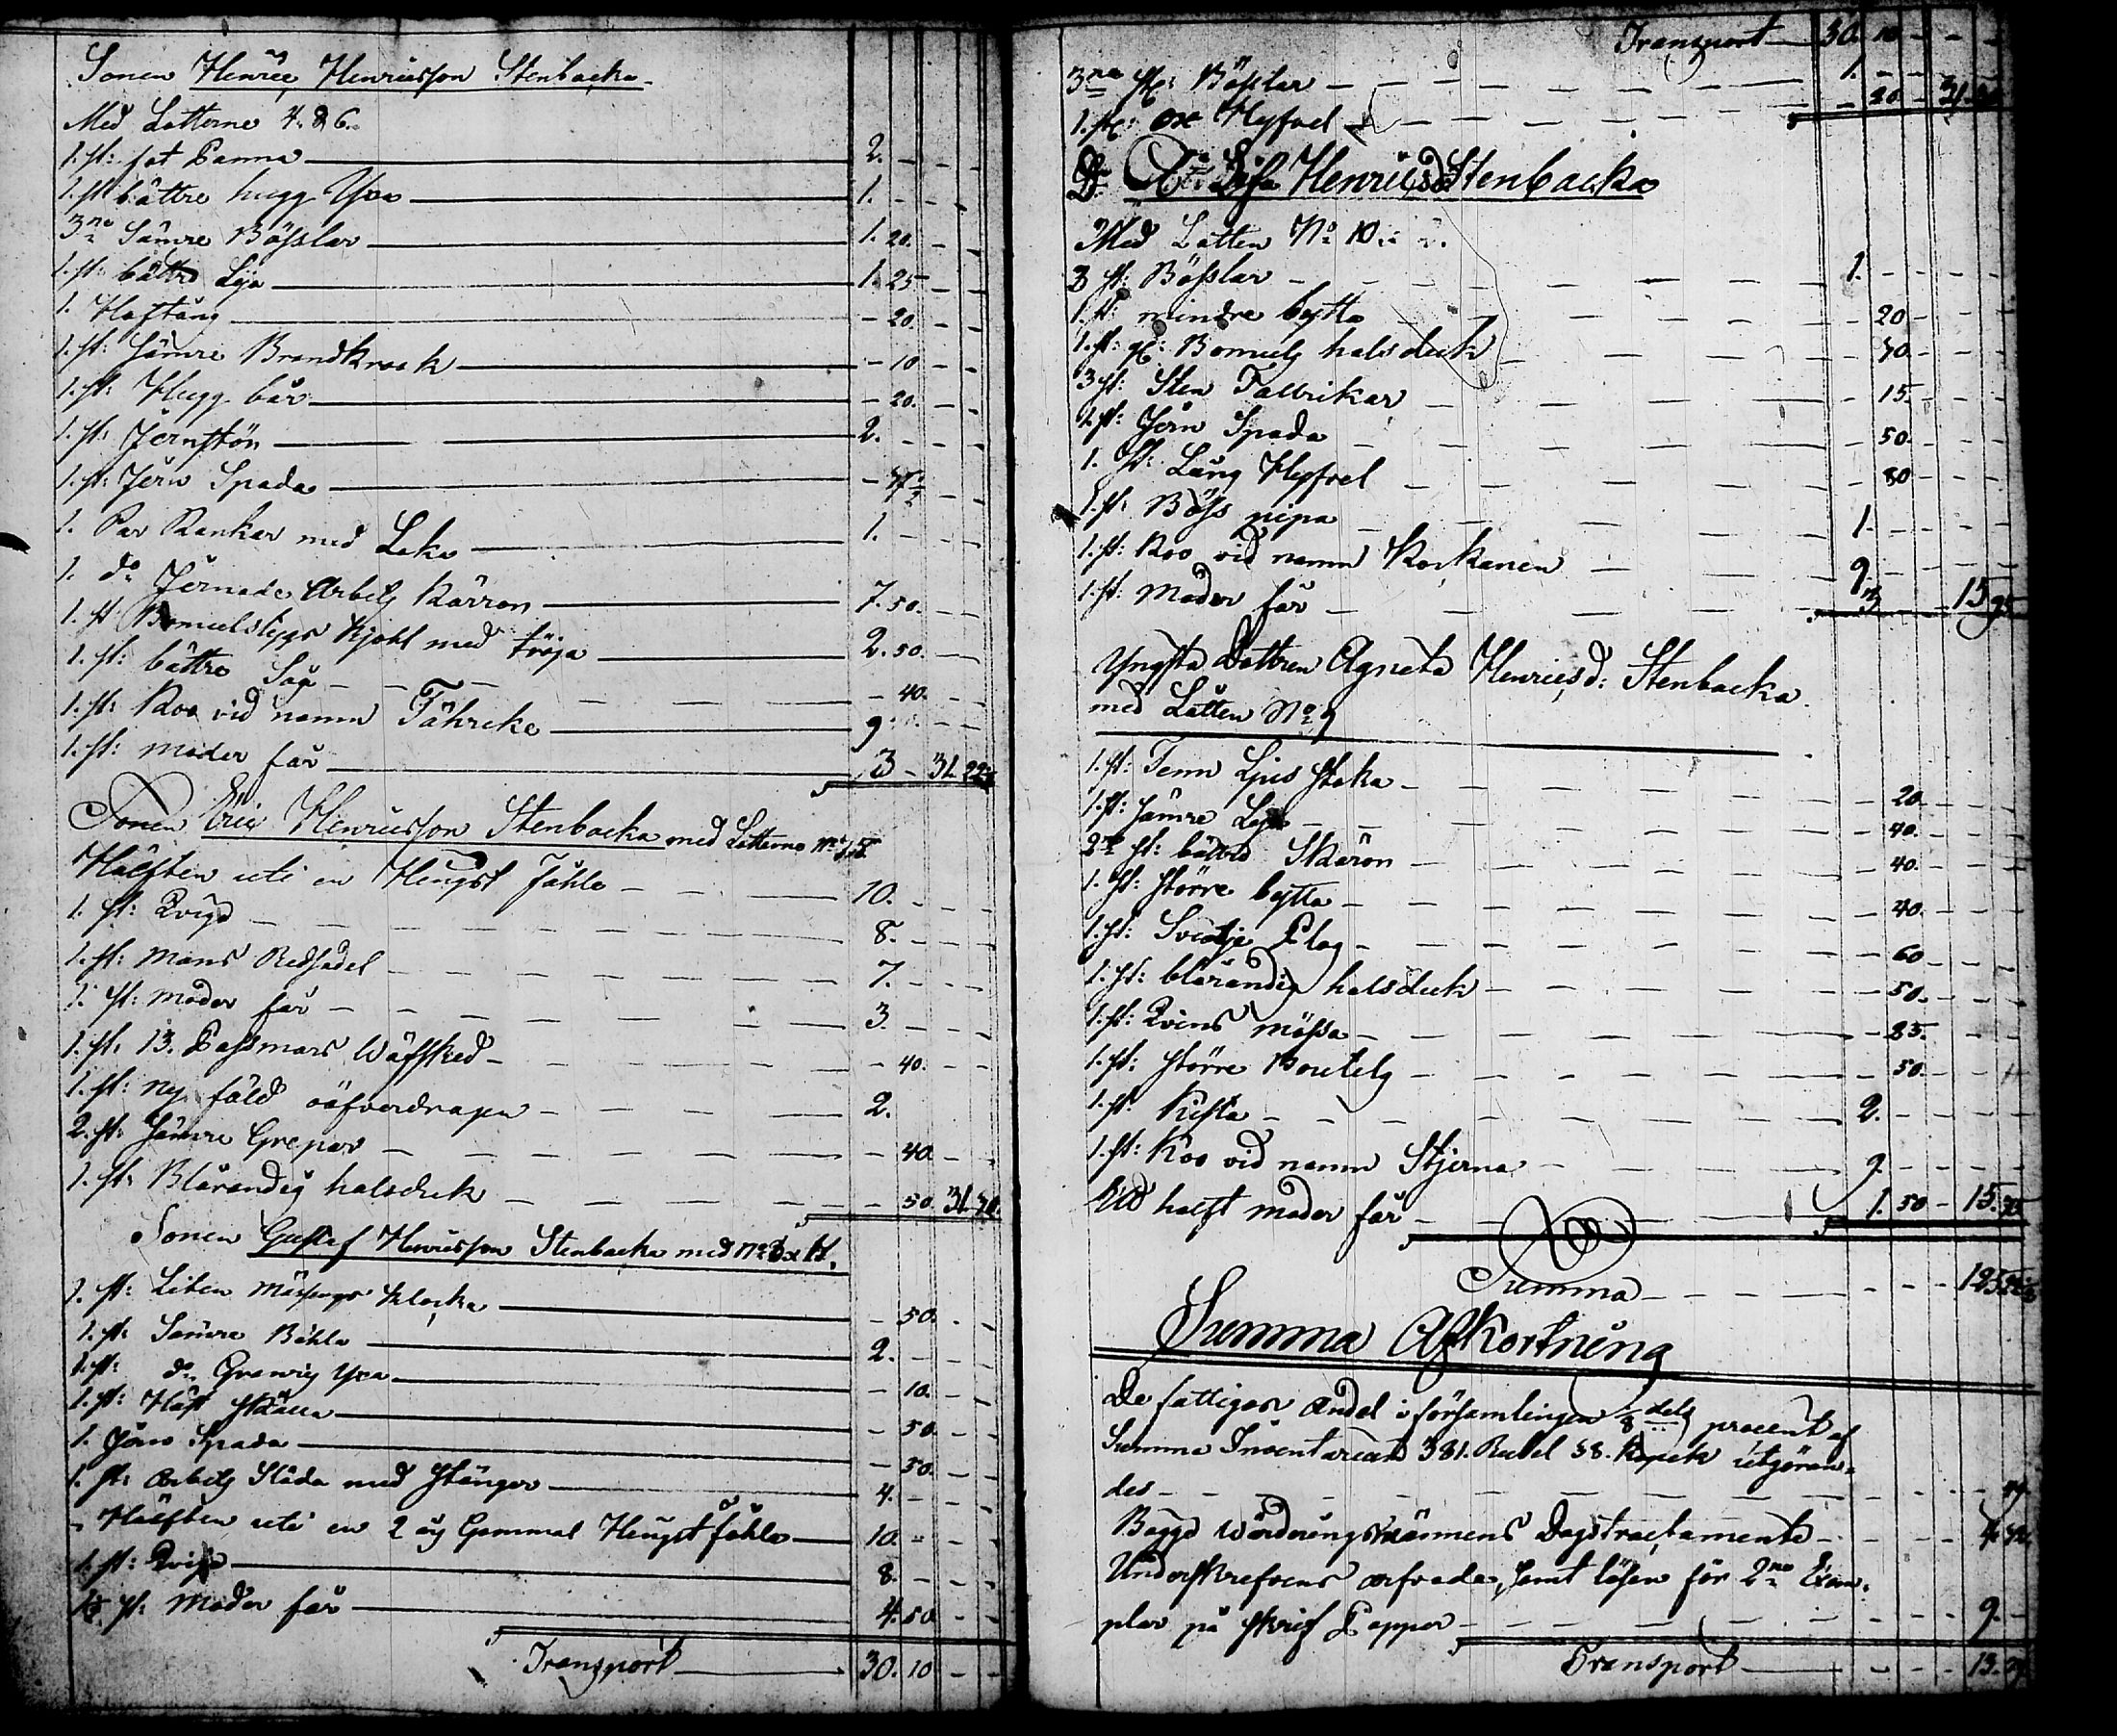 Sonen Henric Henricsson Stenbacka
Med Lotterne 4. & 6.
1. st: fot Panna 2. - - -
1. st bättre hugg Yxa 1. - - -
3ne Sämre Bösslar 1. 20. - -
1. st: bättre Lija 1. 25 - -
1. Hoftång - 20. - -
1. st: Sämre Brandkrook - 10 - -
1. st: Hugg bår - 20. - -
1. st: Jernstör 2. - - -
1. st: Jern Spada - - -
1. Par Rankar med Leko 1. - - -
1. do Jernade Arbets Kärron 7. 50. - -
1. st Bomulstygs Kjohl med tröja 2. 50. - -
1. st: bättre Såg - 40. - -
1. st: Koo vid namn Tähricke 9 - - -
1. st: moder får 3 - 31. 22½
Sonen Eric Henricsson Stenbacka med Lotterne No
Hälften uti en Hengst fåhle 10. - - -
1. st: Qviga 8. - - -
1. st: mans Redsadel 7. - - -
1. st: moder får 3. - - -
1. st: 13. Passmars Wäfsked - 40. - -
1. st: ny fäld oöfverdragen 2.
2. st: Sämre Grepar - 40. - -
1. st: Blårandig halsduk - 50. 31. 30.
Sonen Gustaf Henricsson Stenbacka med No
1. st: Liten Mässings Klocka - 50. - -
1. st: Sämre Båhla 2. - - -
1. st: do Granrig Yxa - 10. - -
1. st: Haf skålla - 50. - -
1. Jern Spada - 50. - -
1. st: Arbets Släda med Stänger 4. - - -
Hälften uti en 2 åg Gammal Hengst fåhle 10. - - -
1. st: Qviga 8. - - -
st: Moder får 4. 50 - -
Transport 30. 10 - -
Transport 30. 10 - - -
3ne st: Bösslar 1. - - -
1. st: Ox Hyfvel - 20 - 31. 30
Dr Lisa Henricsd Stenbacka
Med Lotten No 10
3 st: Bösslar 1. - - -
1. st: mindre bytta - 20 - - -
1. st: gl: Bomuls halsduk - 30. - - -
3 st: Sten Tallrikar - 15. - - -
1. st: Jern Spada - 50. - -
1. st: Lång Hyfvel - 80 - -
1. st: Böss pipa 1. - - -
1. st: Koo vid namn Korkanen 9 - - -
1. st: Moder får 3 - - 15. 95
Yngsta Dottren Agneta Henricsd: Stenbacka
med Lotten No 9
1. st: Tenn Ljus staka - 20. - - -
1. st: Sämre Lija - 40. - - -
2ne st: bättre Skäron - 40. - - -
1. st: större bytta - 40. - - -
1. st: Svedje Plog - 60 - - -
1. st: blårandig halsduk - 50. - - -
1. st: Qvins mössa - 25. - - -
1. st: större Boutelg - 50. - -
1. st: Kista 2. - - -
1. st: Koo vid namn Stjerna 9 - - -
Ett halft moder får 1. 50 - 15.
Summa - - -
Summa Afkortning
De fattigas andel i församlingen 1/8 dels procent af
Summa Inventarium 381. Rubel 38. Kopek utgöran-
des
Begge Wärderingsmännens Dagstractamente
Underskrefvens arfvode, samt lösen för 2ne Exem-
plar på skrif Papper - - - 9. -
Transport - - - 13.